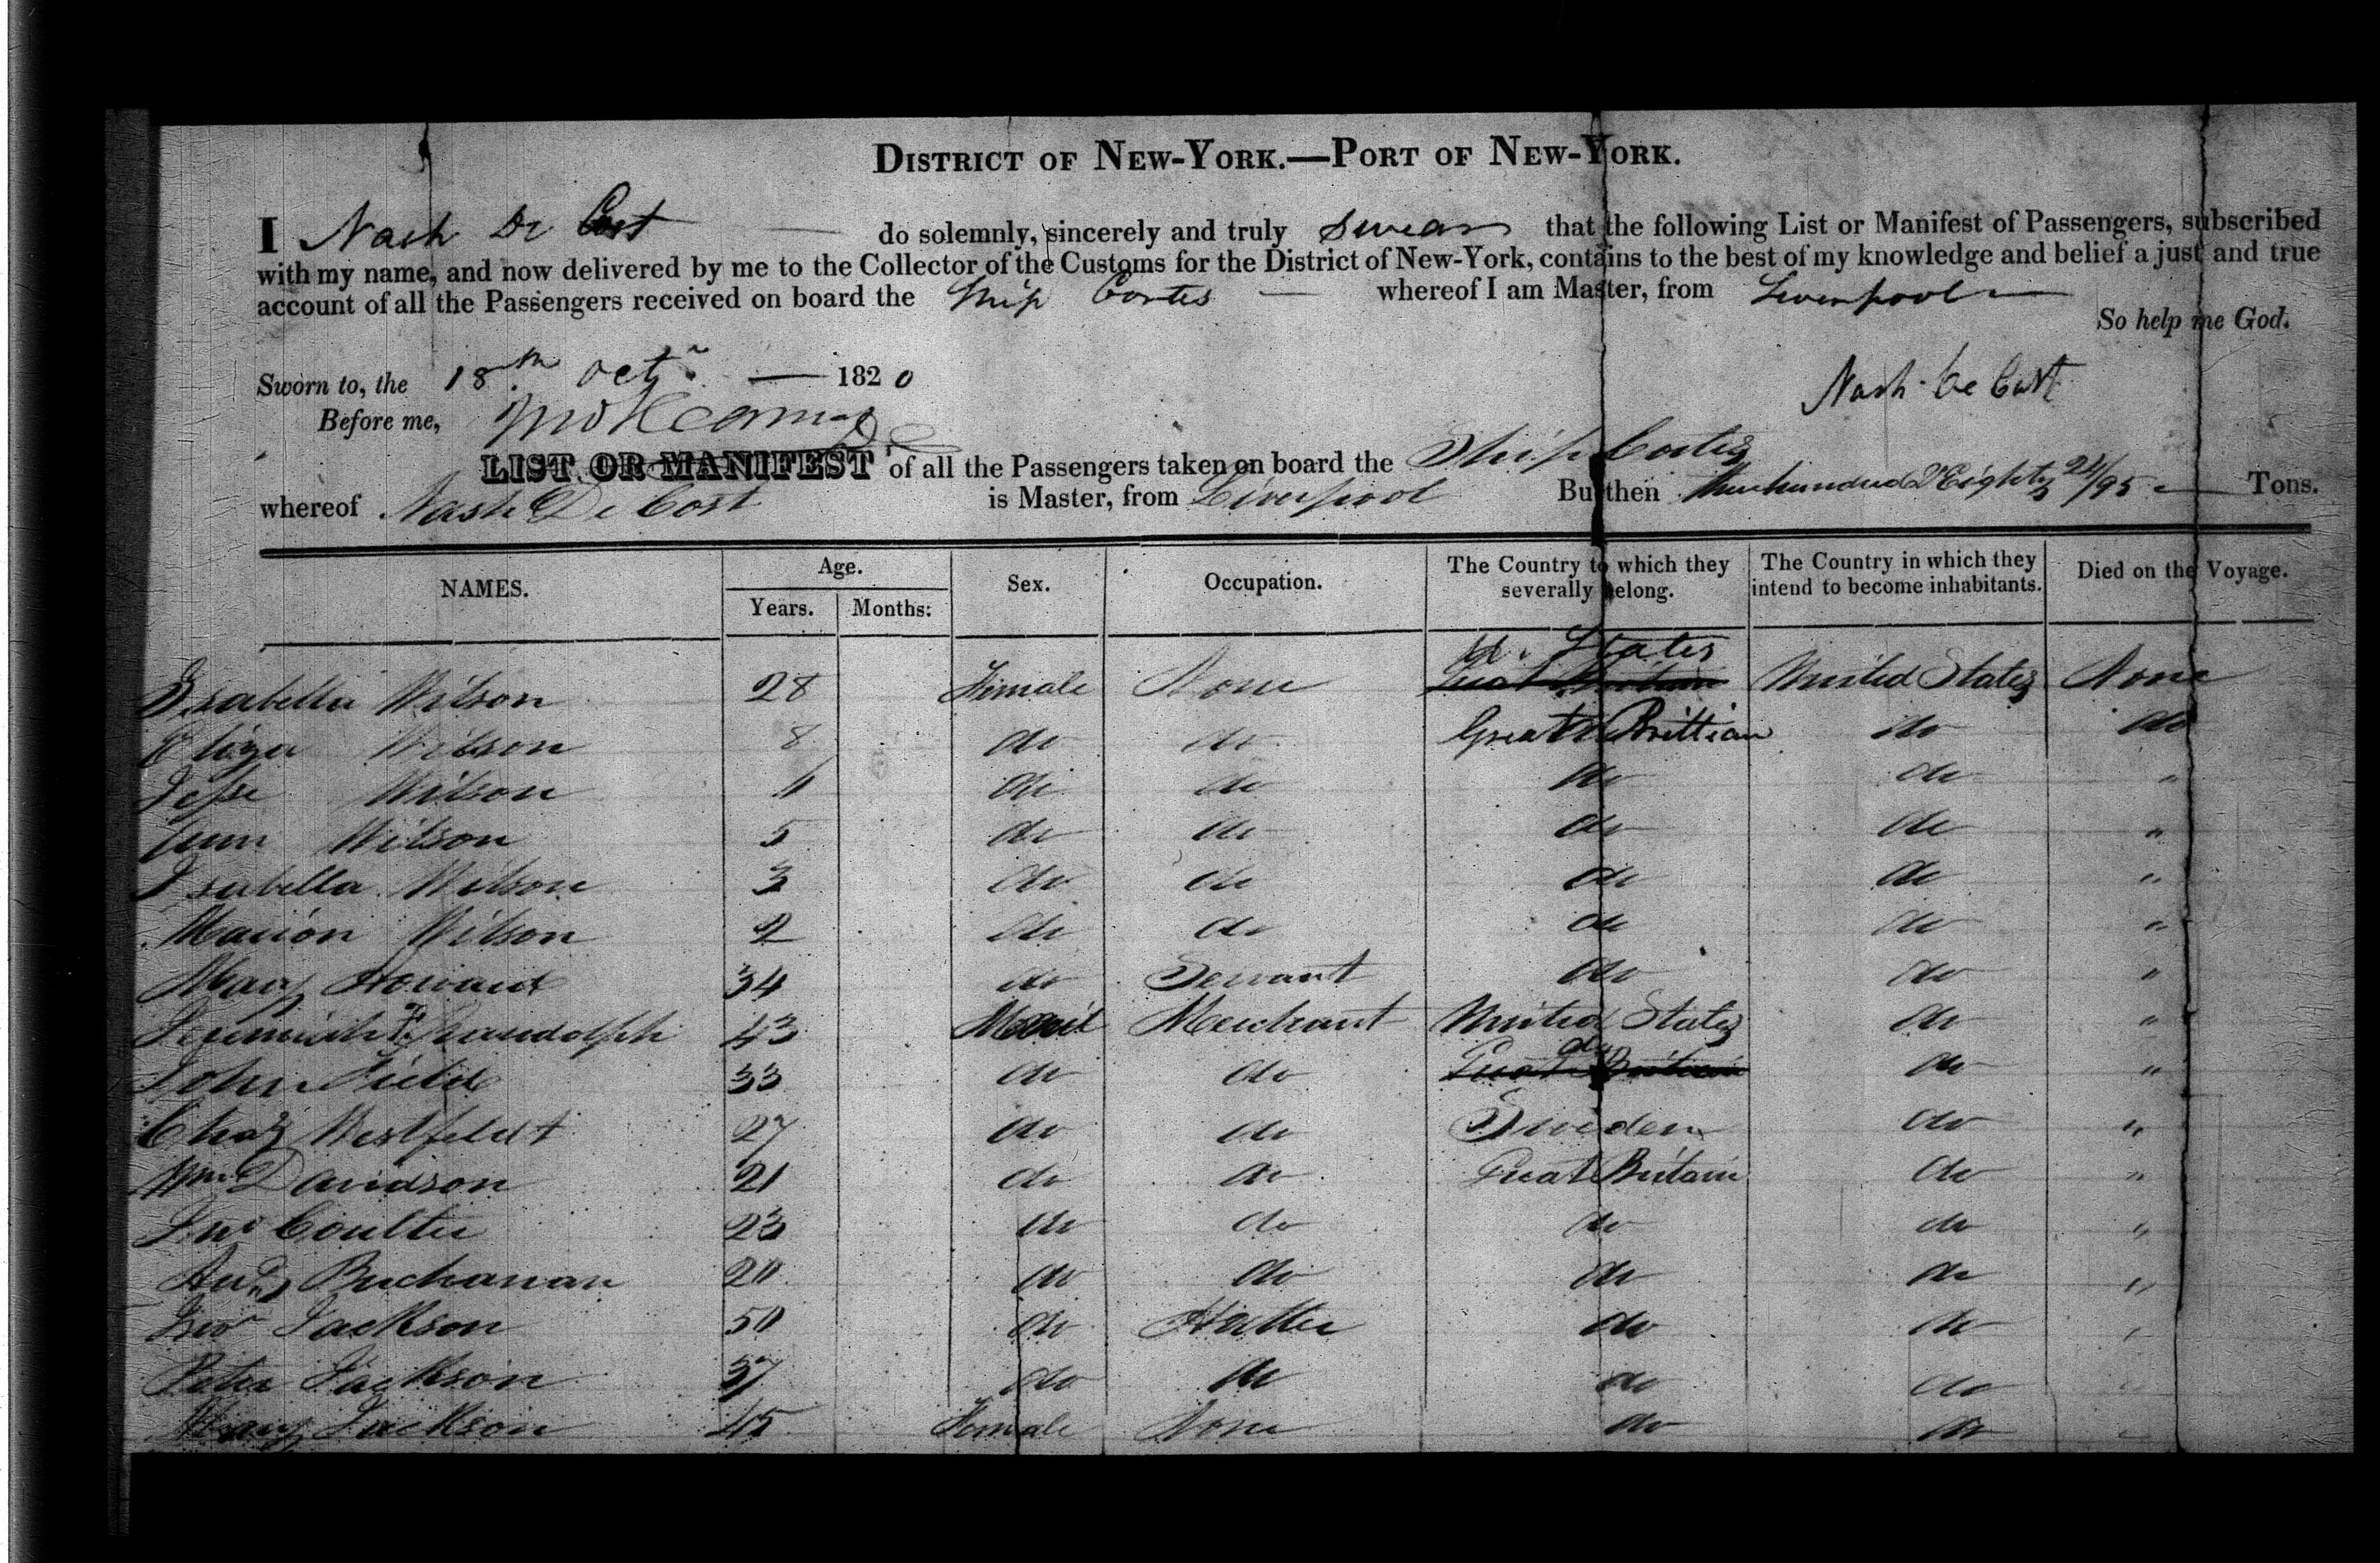 DISTRICT OF NEW-YORK.—PORT OF NEW-YORK.
I Nash De Cost — do solemnly, sincerely and truly swear that the following List or Manifest of Passengers, subscribed
with my name, and now delivered by me to the Collector of the Customs for the District of New-York, contains to the best of my knowledge and belief a just and true
account of all the Passengers received on board the Ship Cortes — whereof I am Master, from Liverpool —
So help me God.
Sworn to, the 18th Octr — 1820
Nash De Cost
Before me,
LIST OR MANIFEST of all the Passengers taken on board the Ship Cortes
whereof Nash De Cost is Master, from Liverpool Burthen three hundred & Eighty 24/95 — Tons.
NAMES. Age. Sex. Occupation. The Country to which they severally belong. The Country in which they intend to become inhabitants. Died on the Voyage.
Years. Months:
U. States
Isabella Wilson 28 Female None Great Britain United States None
Eliza Wilson 8 do do Great Brittian do do
Jesse Wilson do do do do "
Ann Wilson 5 do do do do "
Isabella Wilson 3 do do do do "
Marion Wilson 2 do do do do "
Mary Howard 34 do Servant do do "
Jeremiah F. Randolph 43 Male Merchant United States do "
do
John Field 33 do do Great Britain do "
Chas Westfeldt 27 do do Sweden do "
Wm Davidson 21 do do Great Britain do "
Jno Coulter 23 do do do do "
Andw Buchanan 20 do do do do "
Jackson 50 do Hatter do do "
Peter Jackson 37 do do do do "
Mary Jackson 45 Female None do do "